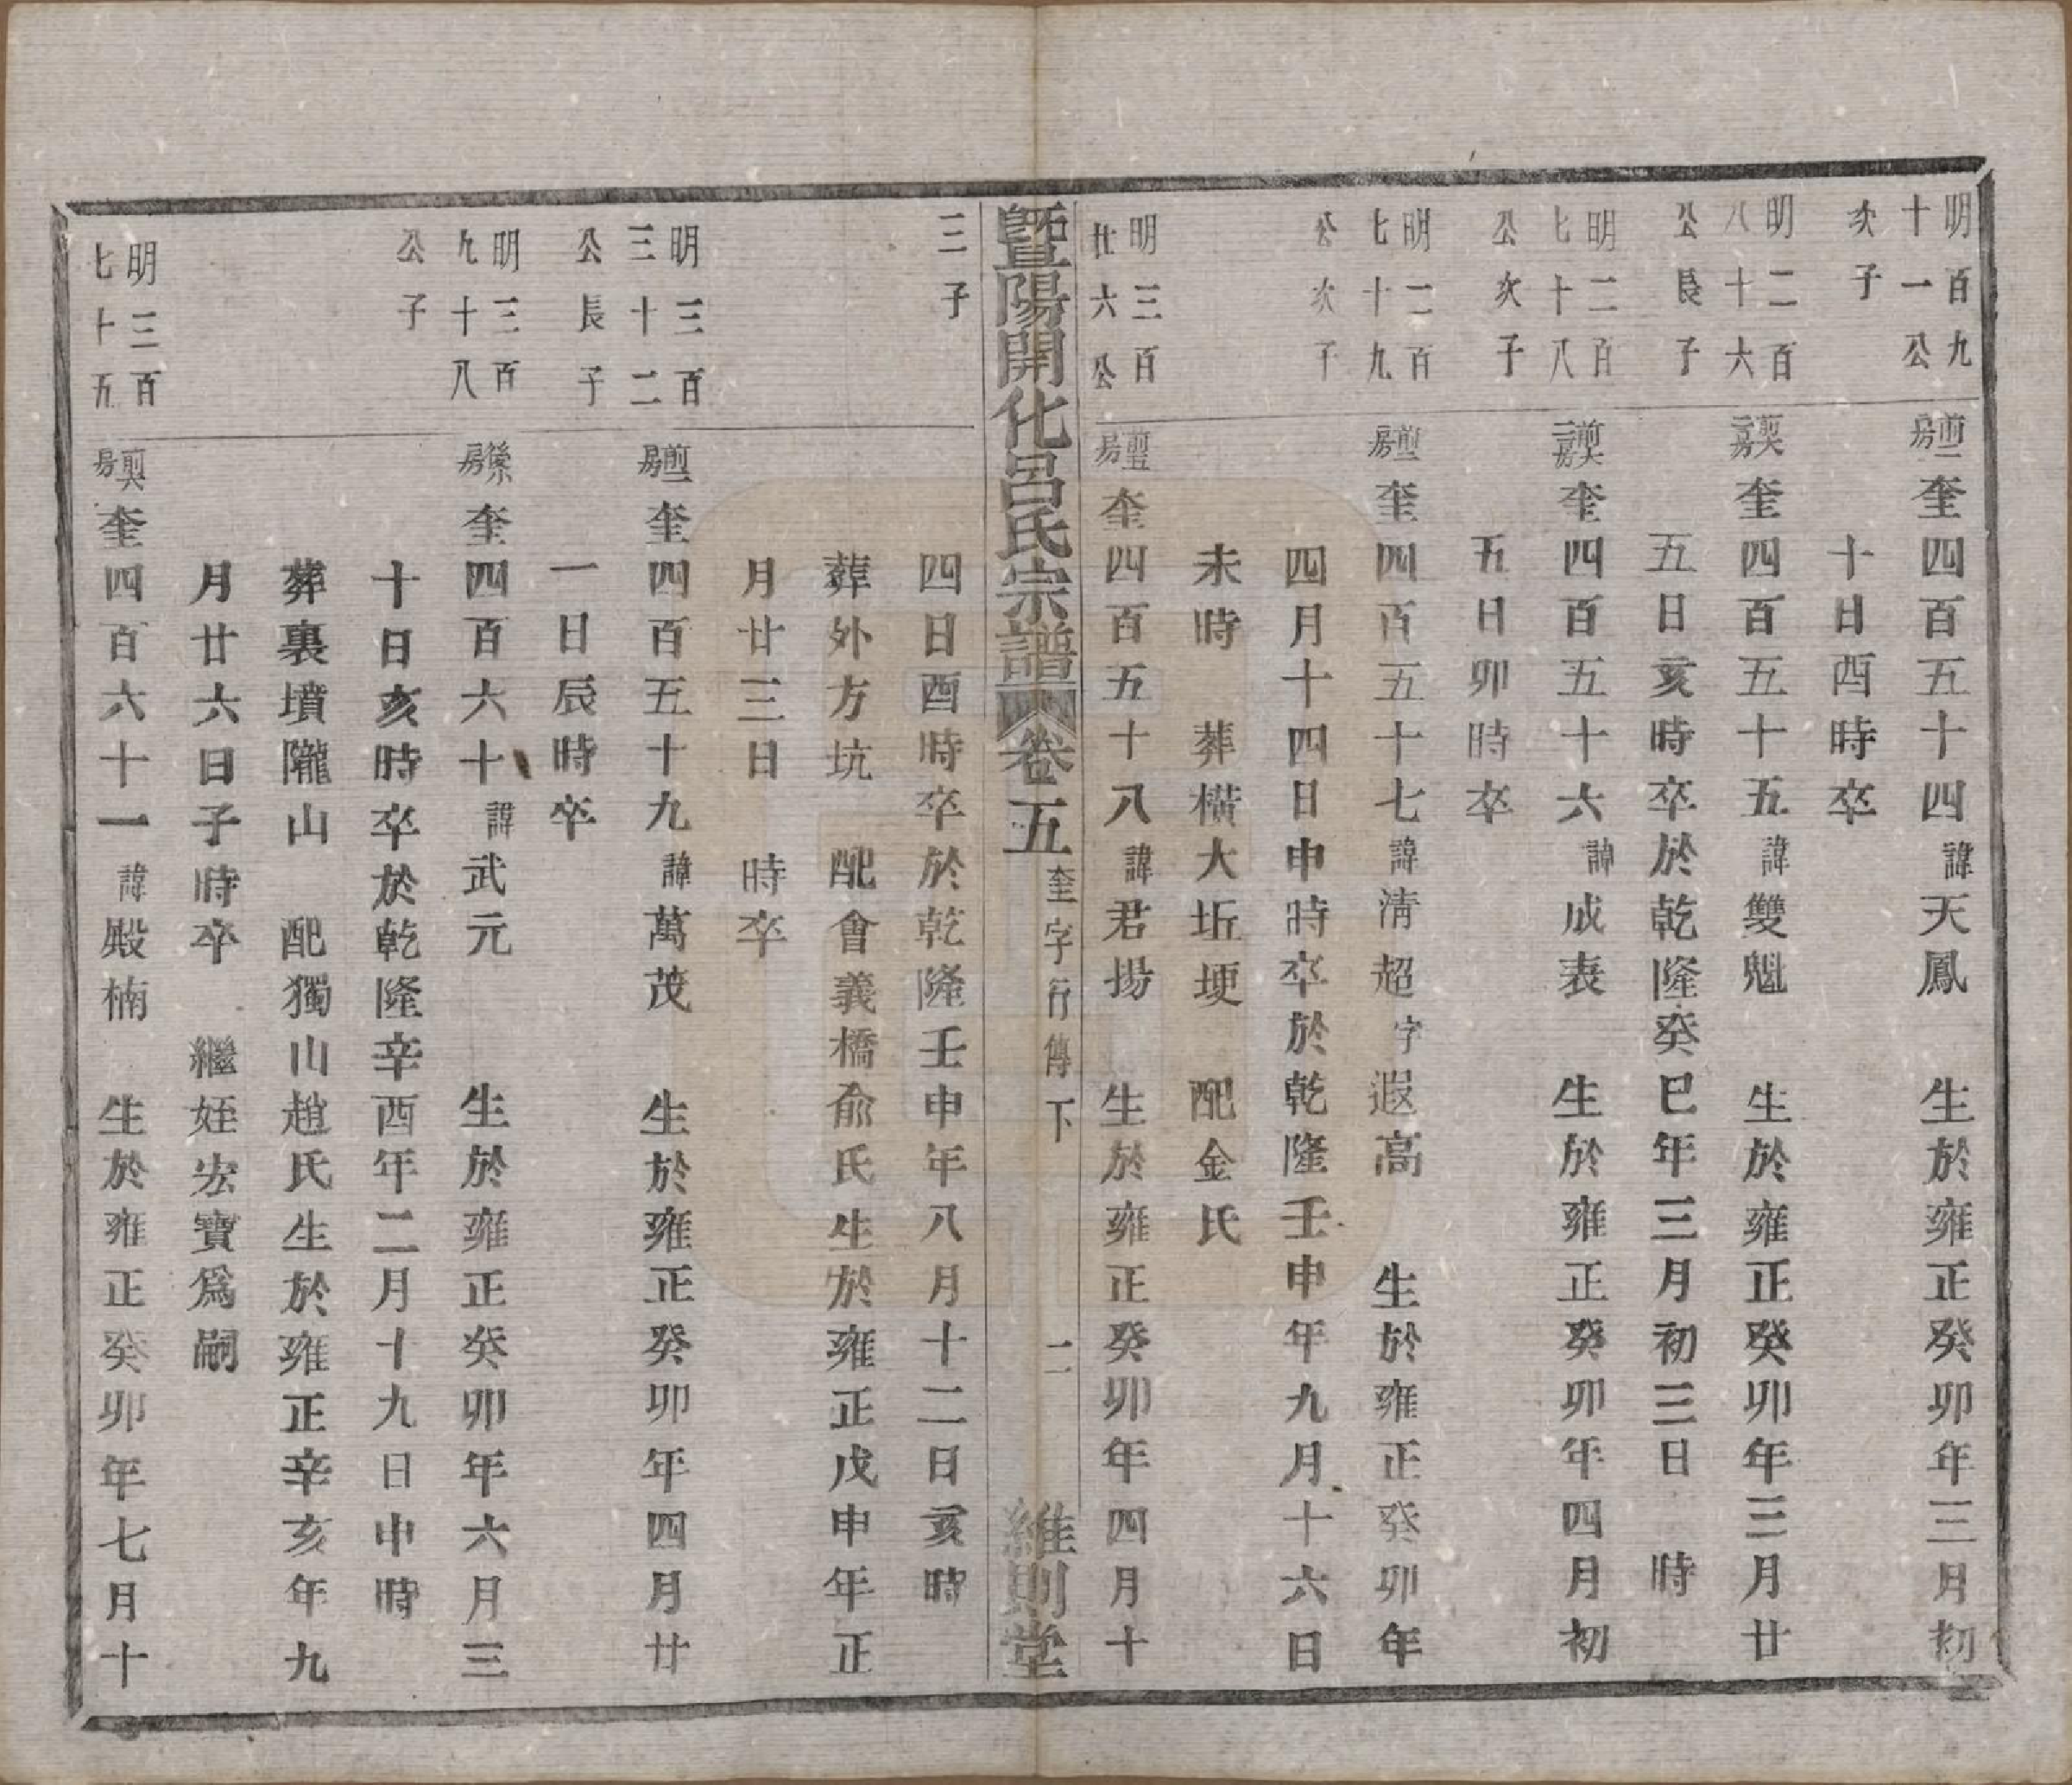 明百九
十一公
次子
奎四百五十四 諱天鳳 生於雍正癸卯年三月初
十日酉時卒
明二百
八十六
公長子
奎四百五十五 諱雙魁 生於雍正癸卯年三月廿
五日亥時卒於乾隆癸巳年三月初三日 時
明二百
七十八
公次子
奎四百五十六 諱成表 生於雍正癸卯年四月初
五日卯時卒
明二百
七十九
公次子
奎四百五十七 諱淸超 字遐高 生於雍正癸卯年
四月十四日申時卒於乾隆壬申年九月十六日
未時 葬橫大坵埂 配金氏
明三百
廿六公
三子
奎四百五十八 諱君揚 生於雍正癸卯年四月十
暨陽開化呂氏宗譜 卷五 奎字行傳下 二 維則堂
四日酉時卒於乾隆壬申年八月十二日亥時
葬外方坑 配會義橋俞氏生於雍正戊申年正
月廿三日 時卒
明三百
三十二
公長子
奎四百五十九 諱萬茂 生於雍正癸卯年四月廿
一日辰時卒
明三百
九十八
公子
房
奎四百六十 諱武元 生於雍正癸卯年六月三
十日亥時卒於乾隆辛酉年二月十九日申時
葬裏墳隴山 配獨山趙氏生於雍正辛亥年九
月廿六日子時卒 繼姪宏寶爲嗣
明三百
七十五
奎四百六十一 諱殿楠 生於雍正癸卯年七月十